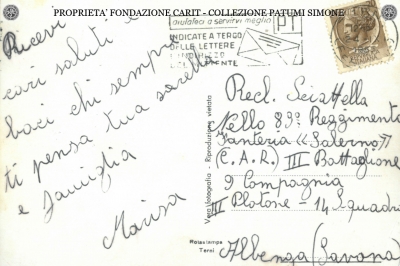 PROPRIETA' FONDAZIONE CARIT - COLLEZIONE PATUMI SIMONE
aiutateci a servirvi meglio
INDICATE A TERGO
DELLE LETTERE
L'INDIRIZZO
DEL MITTENTE
Ricevi
cari saluti e
baci chi sempre
ti pensa tua sorella
e famiglia
Marisa
Vera fotografia - Riproduzione vietata
Rotastampa
Terni
Recl. Sciattella
Nello 89º Reggimento
Fanteria "Salerno"
(C.A.R.) III Battaglione
9 Compagnia
III Plotone - 14 Squadra
Albenga (Savona)